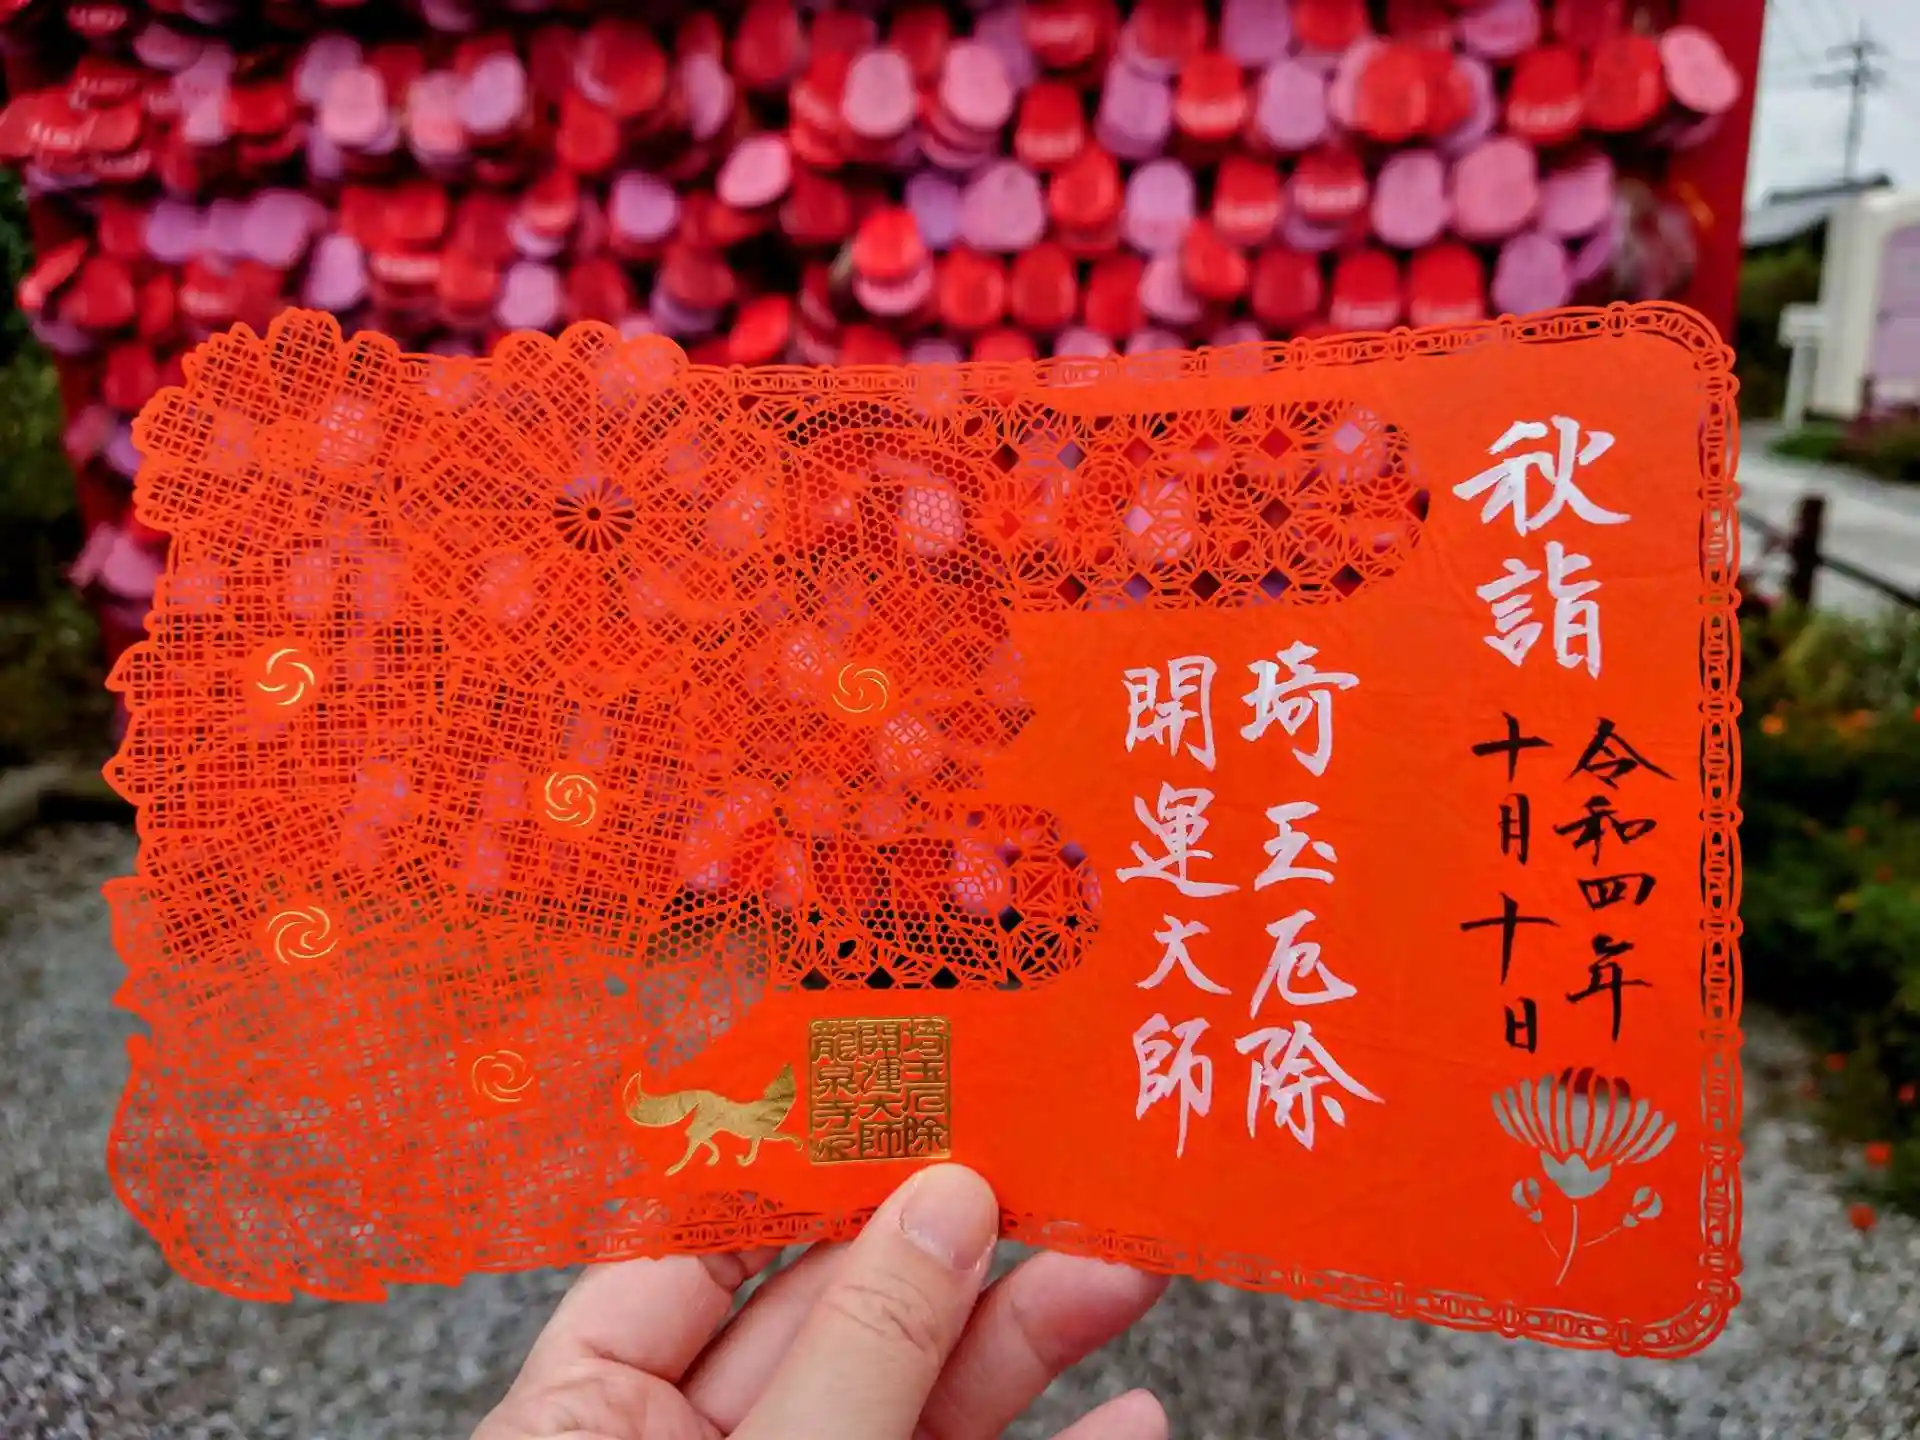 秋詣
令和四年
十月十日
琦玉厄除
開運大師
埼玉厄除
開運大師
龍泉寺印